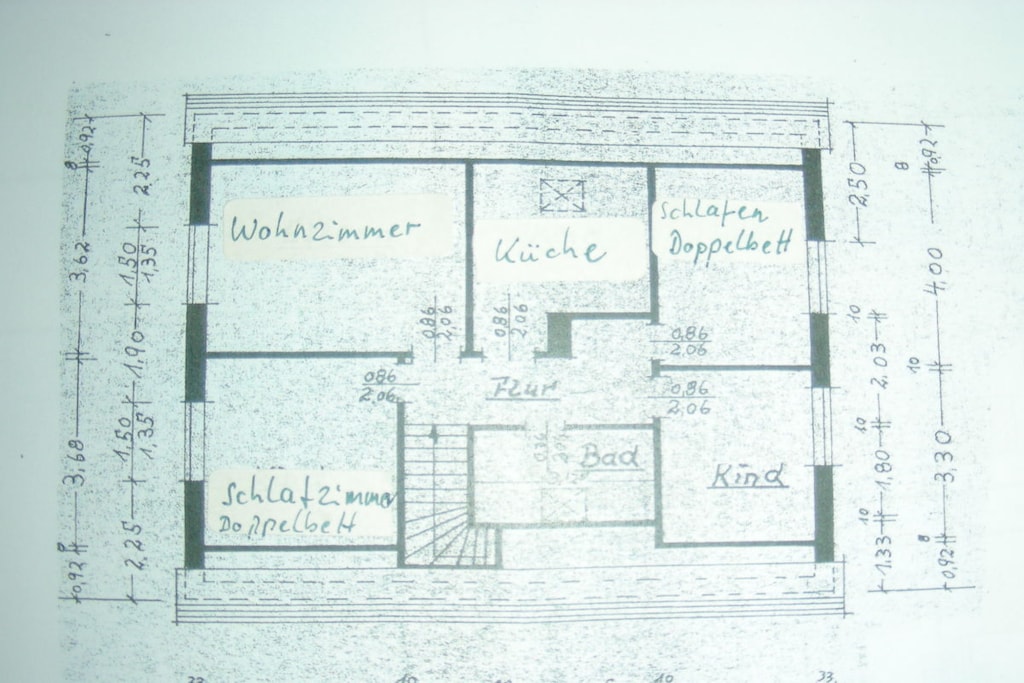 Wohnzimmer
Küche
Schlafen
Doppelbett
Flur
Bad
Kind
Schlafzimmer
Doppelbett
0,86
2,06
0,86
2,06
0,86
2,06
0,86
2,06
0,86
2,06
0,92
8
3,62
3,68
0,92
2,25
1,50
1,35
1,90
1,50
1,35
2,25
2,50
10
2,03
10
1,80
10
1,33
8
0,92
4,00
10
3,30
8
0,92
33
10
10
33